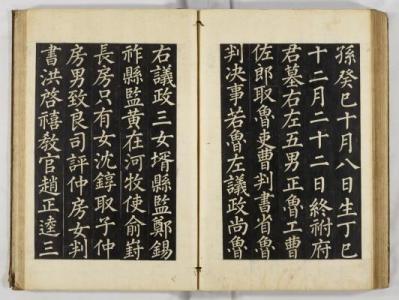 孫癸巳十月八日生丁巳
十二月二十二日終祔府
君墓右左五男正魯工曹
佐郎取魯吏曹判書省魯
判決事若魯左議政尚魯
右議政三女壻縣監鄭錫
祚縣監黃在河牧使俞
長房只有女沈錞取子仲
房男致良司評仲房女判
書洪啓禧教官趙正逵三